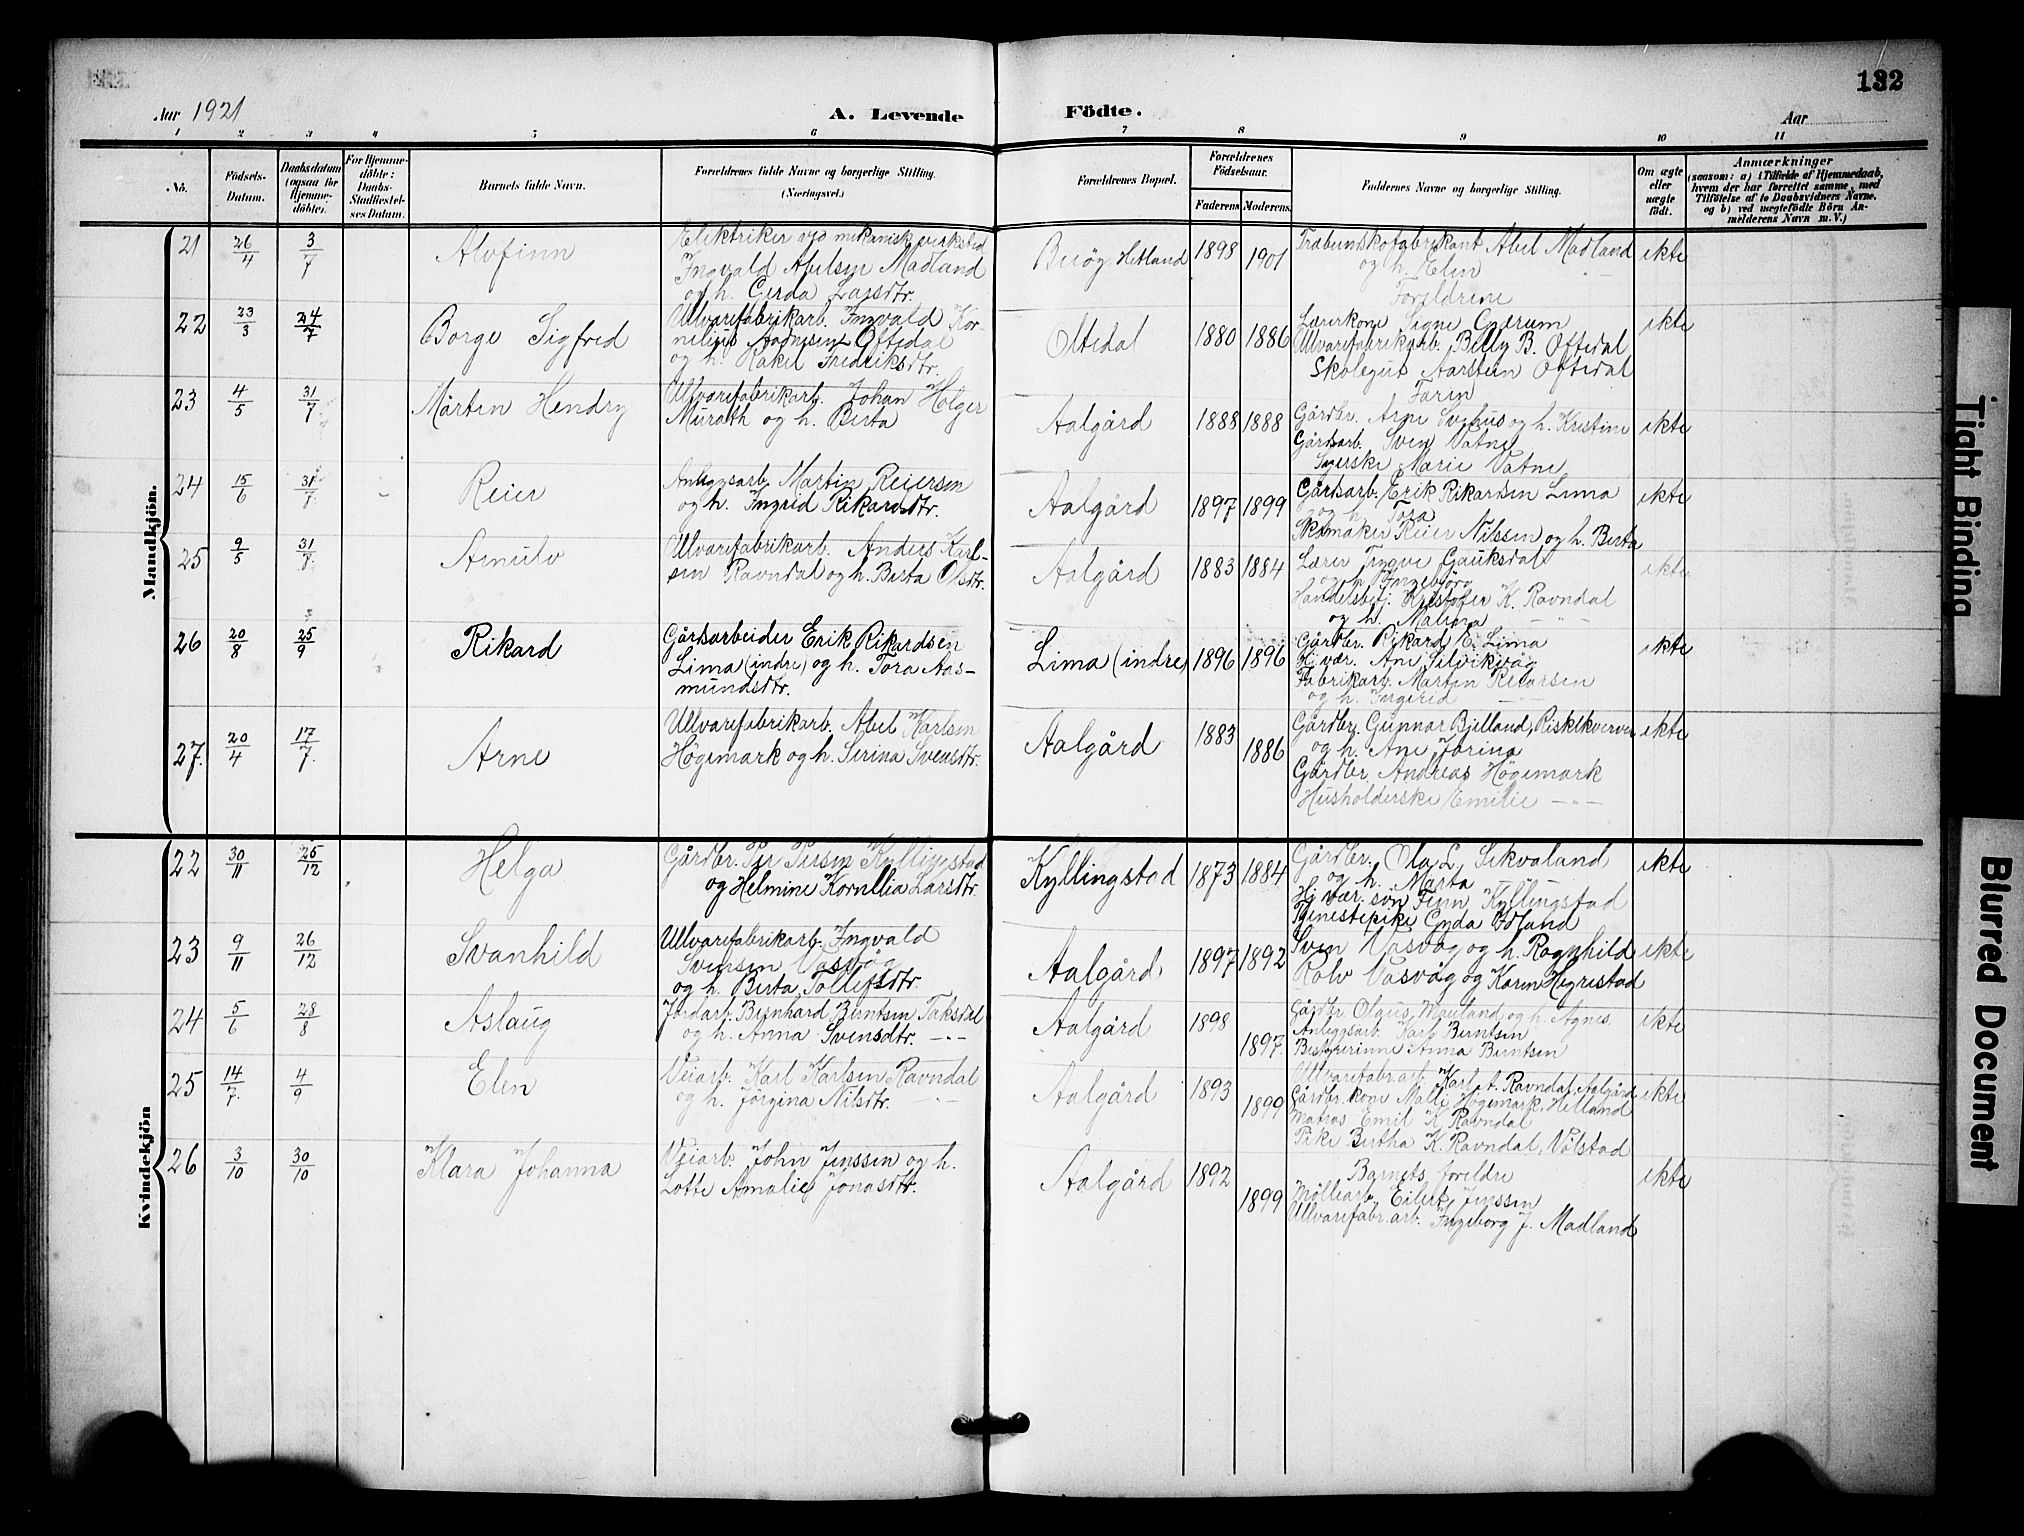 132
Aar 1921
A. Levende Födte.
Aar
1 2 3 4 5 6 7 8 9 10 11
No.
Födsels-Datum.
Daabsdatum (ogsaa for Hjemme-döbte).
For Hjemme-döbte: Daabs-Stadfæstel-ses Datum.
Barnets fulde Navn.
Forældrenes fulde Navne og borgerlige Stilling.
(Næringsvei.)
Forældrenes Bopæl.
Forældrenes Födselsaar.
Faderens Moderens
Faddernes Navne og borgerlige Stilling.
Om ægte eller uægte födt.
Anmærkninger
(saasom: a) i Tilfælde af Hjemmedaab,
hvem der har forrettet samme, med
Tilföielse af to Daabsvidners Navne,
og b) ved uægtefödte Börn An-
melderens Navn m. V.)
Mandkjön.
21 26/4 3/7 Alvfinn
Elektriker ved mekanisk verksted
Ingvald Abelsen Madland
og h. Gerda Larsdtr.
Buöy Hetland 1898 1901
Træbunskofabrikant Abel Madland
og h. Elen
Foreldrene
ekte
22 23/3 24/7 Borge Sigfred
Ullvarefabrikarb. Ingvald Kor-
nelius Oftedal
og h. Rakel Fredriksdtr.
Oltedal 1880 1886
Lærerkone Signe Gjærum
Ullvarefabrikarb. Billy B. Oftedal
Skolegut Aarstein Oftedal
Faren
ekte
23 4/5 31/7 Mårten Hendry
Ullvarefabrikarb. Johan Holger
Murath og h. Berta
Aalgård 1888 1888
Gårdbr. Arne og h. Kristine
Gårdsarb. Sven Vatne
Syerske Marie Vatne
ekte
24 15/6 31/7 Reier
Anleggsarb. Martin Reiersen
og h. Ingrid Rikardsdtr.
Aalgård 1897 1899
Gårdsarb. Erik Rikardsen Lima
og h. Tora
Skomaker Reier Nilssen og h. Berta
ekte
25 9/5 31/7 Arnulv
Ullvarefabrikarb. Anders Karl-
sen Ravndal og h. Berta Olsdtr.
Aalgård 1883 1884
Lærer Tngve Gauksdal
og h. Ingebjörg
Handelsbetj. Kristofer K. Ravndal
og h. Malena
ekte
26 20/8 25/9 Rikard
Gårdsarbeider Erik Rikardsen
Lima (indre) og h. Tora Aas-
mundsdtr.
Lima (indre) 1896 1896
Gårdbr. Rikard E. Lima
Hjvær. Ane Selvikvåg
Fabrikarb. Martin Reiarsen
og h. Ingerid
ekte
27. 20/4 17/7. Arne
Ullvarefabrikarb. Abel Karlsen
Högemark og h. Serina Svensdtr.
Aalgård 1883 1886
Gårdbr. Gunnar Bjelland, Riskekverven
og h. Ane Jorina
Gårdbr. Andreas Högemark
Husholderske Emilie —"—
ekte
Kvindekjön
22 30/11 25/12 Helga
Gårdbr. Per Persen Kyllingstad
og Helmine Kornelia Larsdtr.
Kyllingstad 1873 1884
Gårdbr. Ola L. Sikvaland
og h. Marta
Hj. vær. sön Finn Kyllingstad
Tjenestepike Gyda Edland
ekte
23 9/11 26/12 Svanhild
Ullvarefabrikarb. Ingvald
Svensen Vasvåg
og h. Berta Tollefsdtr.
Aalgård 1897 1892
Sven Vasvåg og h. Ragnhild
Rolv Vasvåg og Karen Hegrestad
ekte
24 5/6 28/8 Aslaug
Jordarb. Bernhard Berntsen Taksdal
og h. Anna Svensdtr. —"—
Aalgård 1898 1897.
Gårdbr. Olaus Mauland og h. Agnes
Anleggsarb. Karl Berntsen
Bestyrerinne Anna Berntsen
ekte
25 14/7. 4/9 Elen
Veiarb. Karl Karlsen Ravndal
og h. Jörgina Nilsdtr. —"—
Aalgård 1893 1899
Ullvarefabr.arb. Karl A. Ravndal, Aalgård
Gårdbr.kone Malli Högemark, Hetland
Matros Emil K. Ravndal
Pike Bertha K. Ravndal, Völstad
ekte
26 3/10 30/10 Klara Johanna
Veiarb. John Jenssen og h.
Lotte Amalie Jonasdtr.
Aalgård 1892 1899
Barnets foreldre
Möllearb. Eilert Jenssen
Ullvarefabr.arb. Ingeborg J. Madland
ekte
Tight Binding
Blurred Document